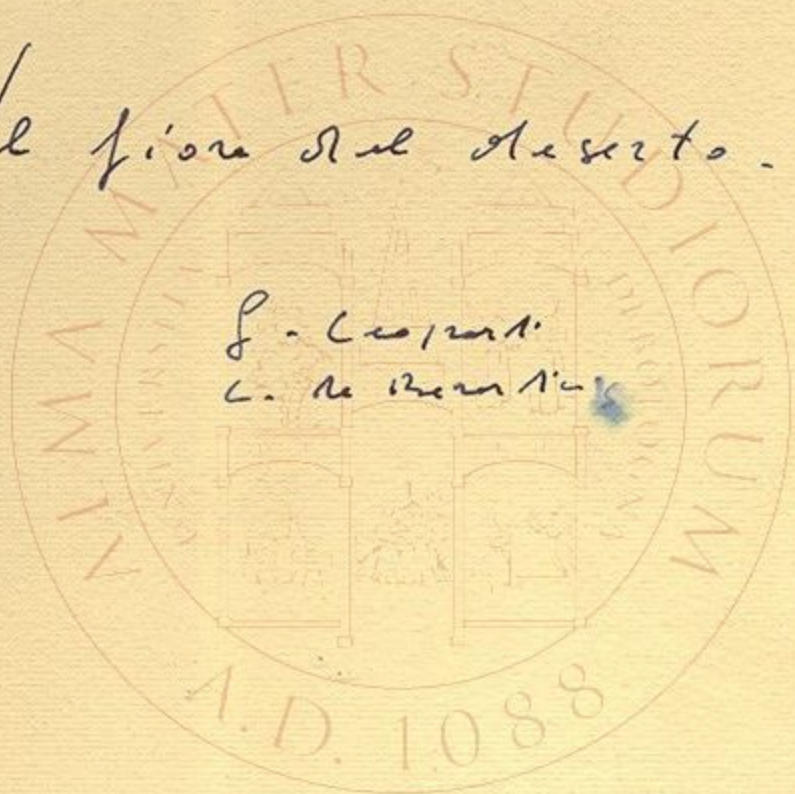 Il fiore del deserto.
G. Leopardi
de
ALMA MATER STUDIORUM
A.D. 1088